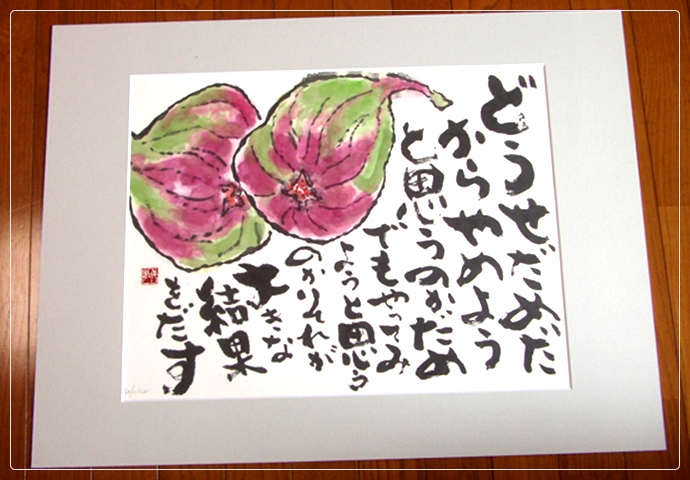 どうせだめだ
からやめよう
と思うのがだめ
でもやってみ
ようと思う
それが
大きな
結果
をだす